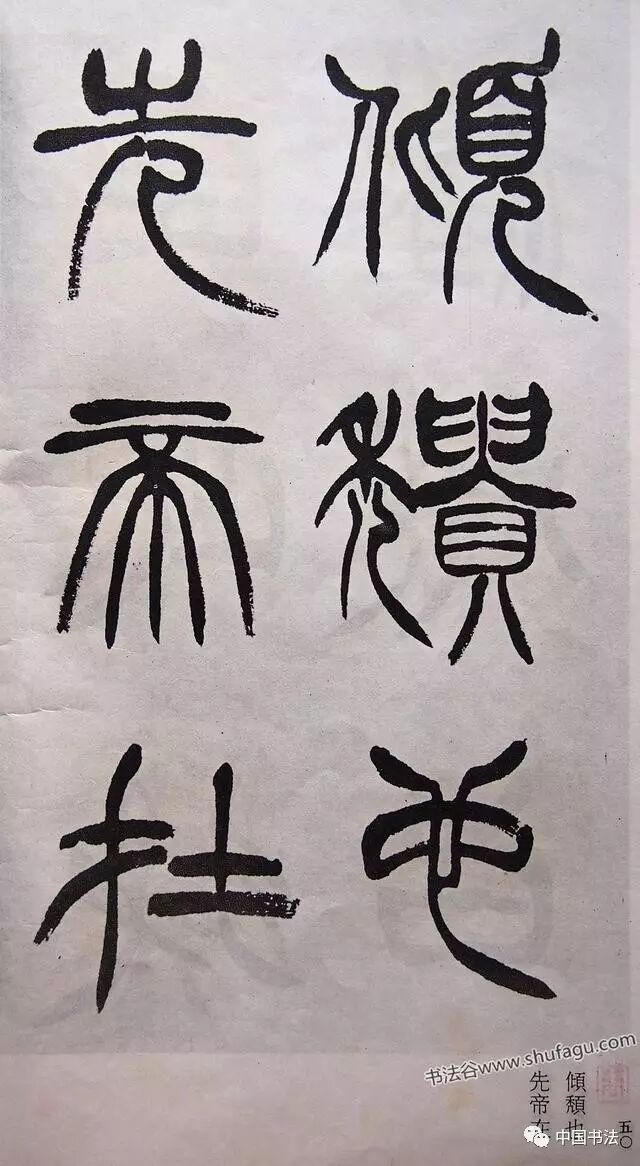 傾穨也
先帝在
書法谷www.shufagu.com
五〇
傾頹也
先帝在
中国书法